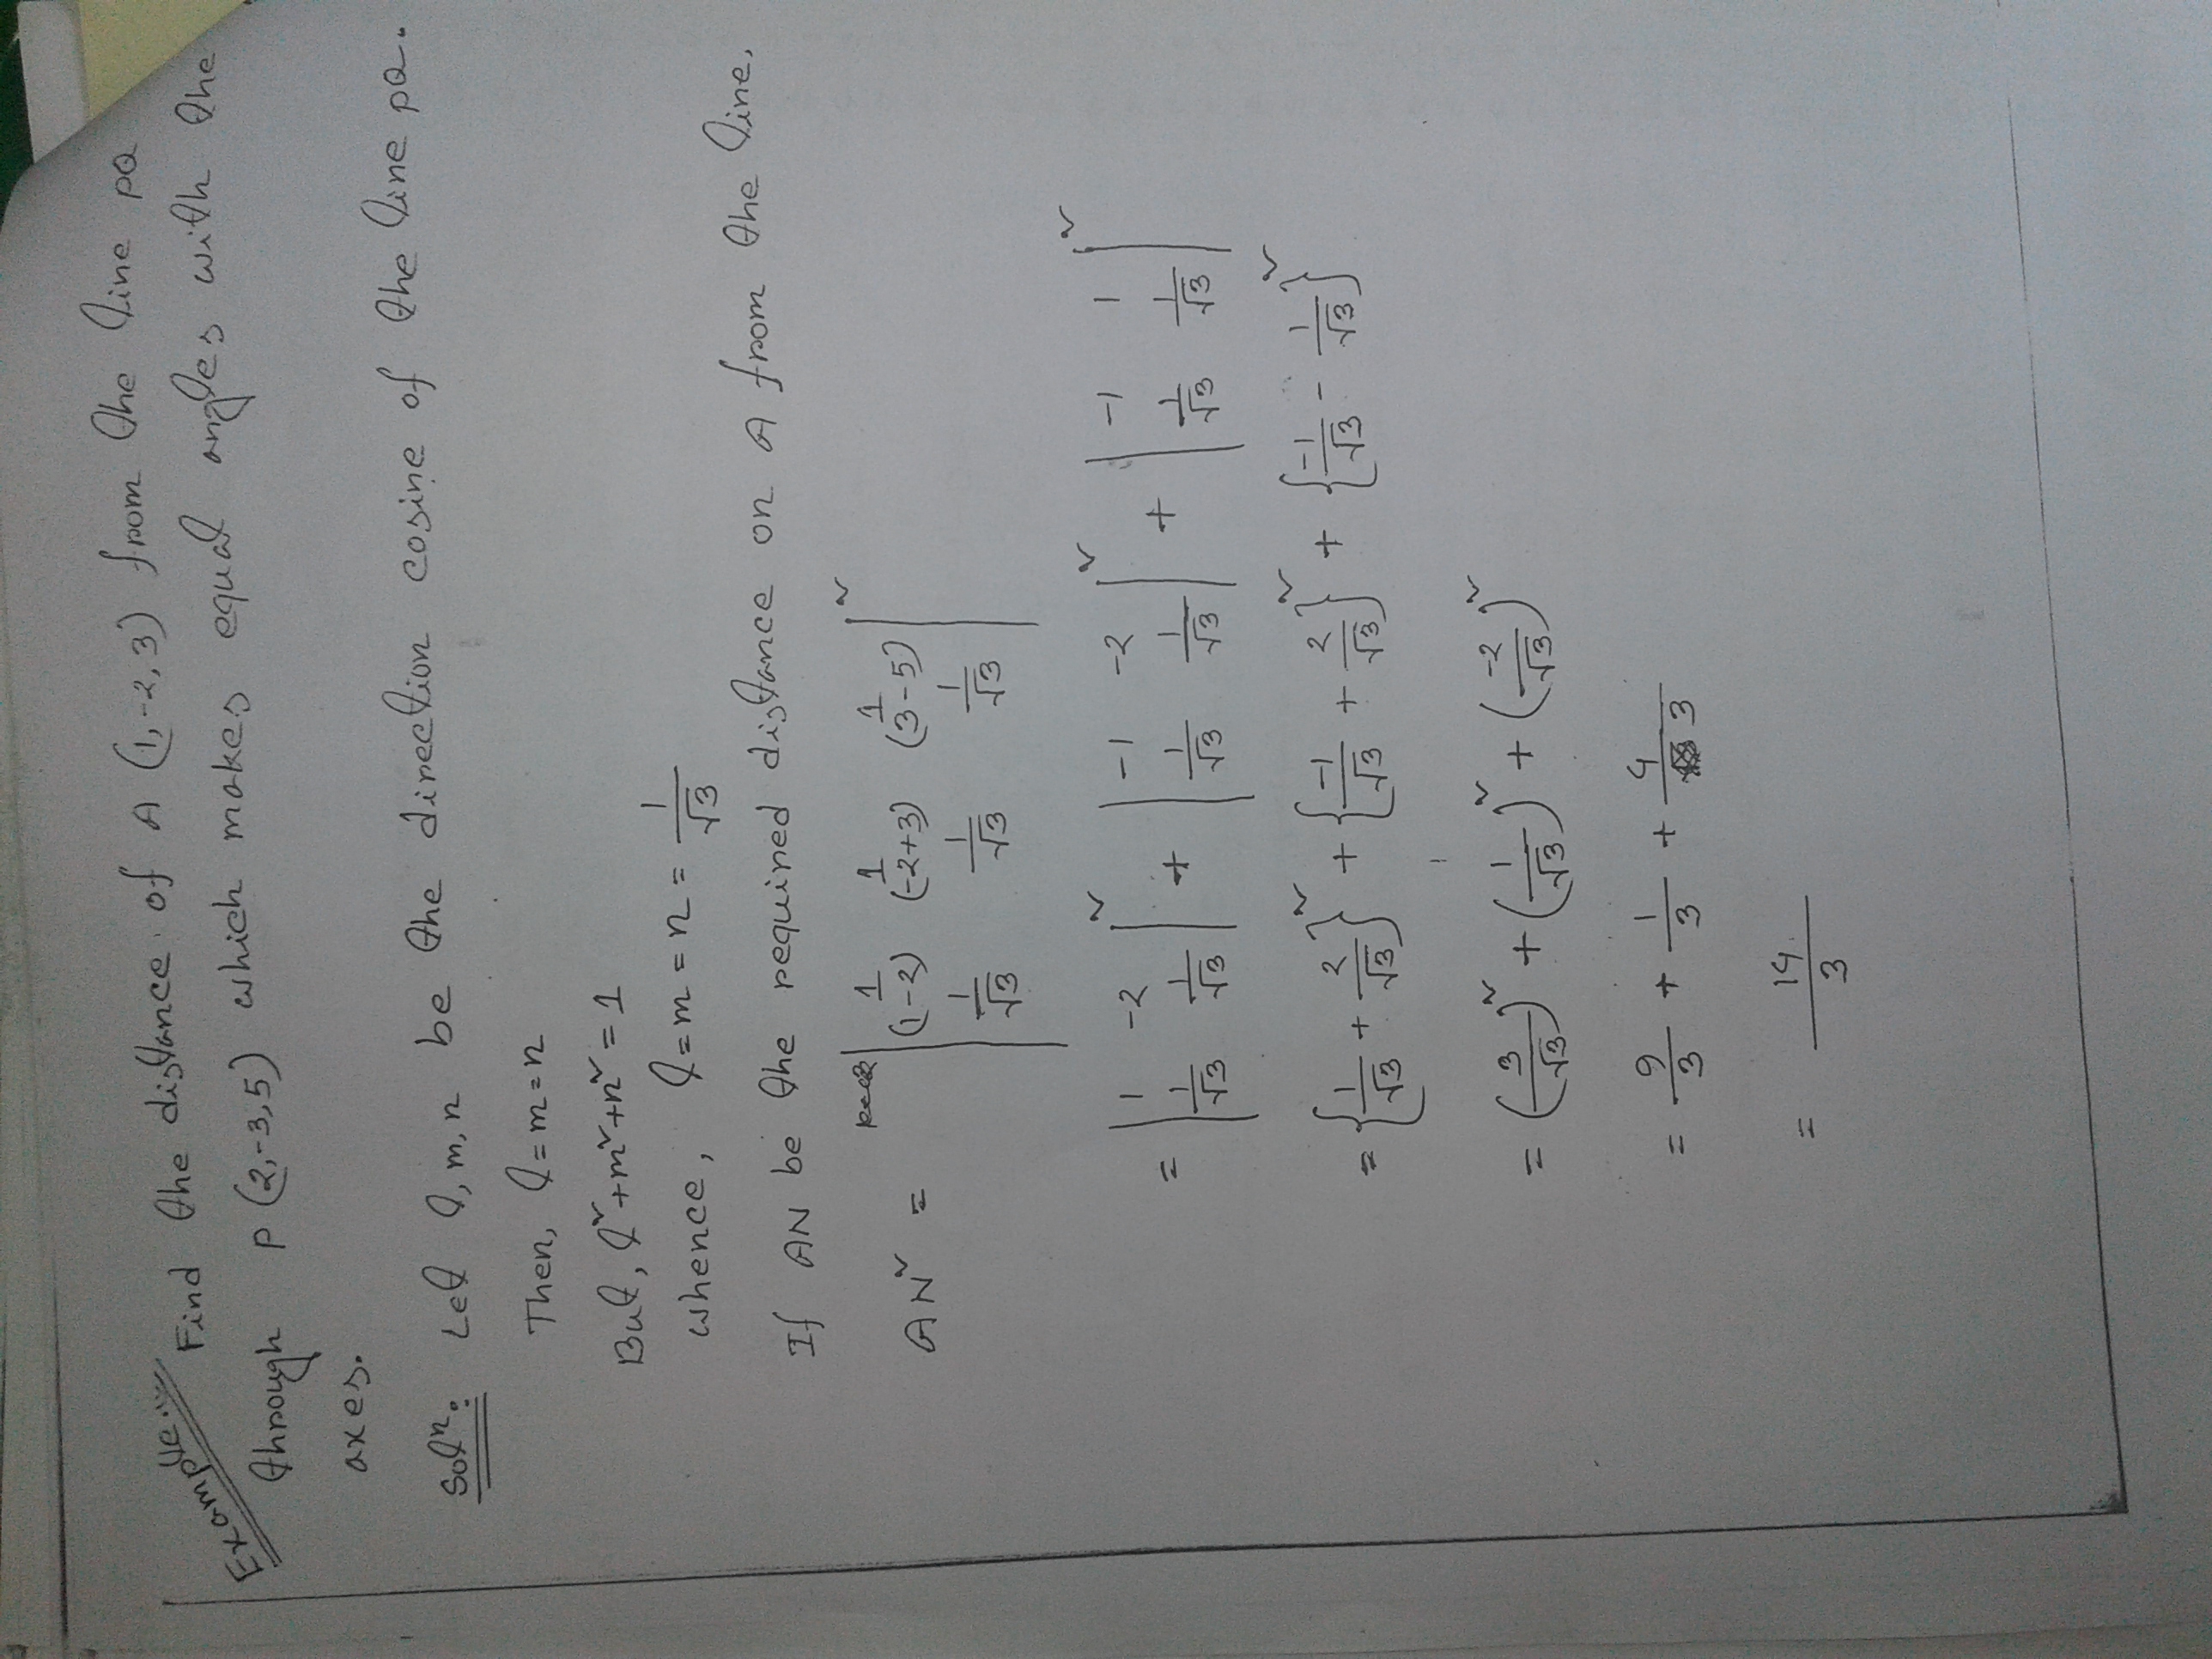 Example:
Find the distance of A (1,-2,3) from the line PQ
through P (2,-3,5) which makes equal angles with the
axes.
Solⁿ: Let l, m, n be the direction cosine of the line PQ.
Then, l = m = n
But, l² + m² + n² = 1
whence, l = m = n = 1/√3
If AN be the required distance on A from the line.
AN² = | 1 1 1 |²
| (1-2) (-2+3) (3-5) |
| 1/√3 1/√3 1/√3 |
= | 1 -2 |² + | -1 -2 |² + | -1 1 |²
| 1/√3 1/√3 | | 1/√3 1/√3 | | 1/√3 1/√3 |
= {1/√3 + 2/√3}² + {-1/√3 + 2/√3}² + {-1/√3 - 1/√3}²
= (3/√3)² + (1/√3)² + (-2/√3)²
= 9/3 + 1/3 + 4/3
= 14/3